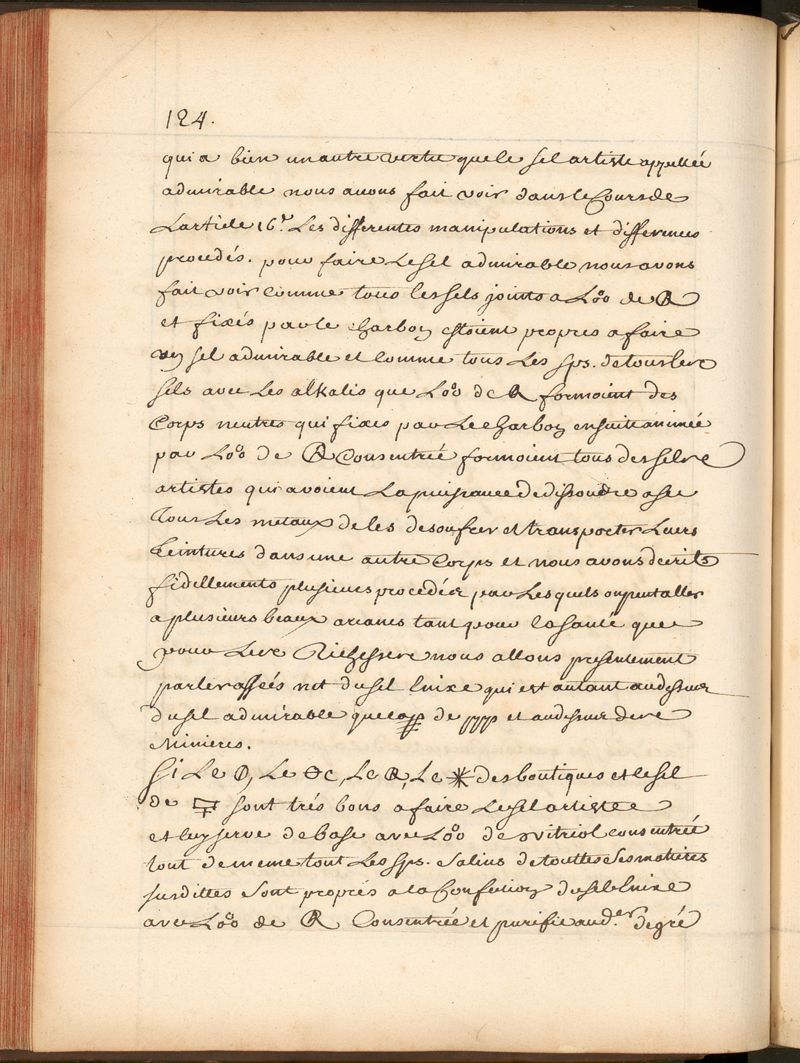 124.
qui a bien un autre vertu que le sel artiste appellée
admirable nous avons fait voir dans le Cours de
L'article 16.e Les differentes manipulations et differences
procedés. pour faire Le sel admirable nous avons
fait voir Comme tous les sels joints a L'oo de
et fixés par le charbon estoient propres a faire
un sel admirable et Comme tous Les sps. de tous les
sels avec Les alkalis que L'oo de formoient des
Corps neutres qui fixes par Le charbon ensuite animée
par L'oo de Consentrée formoient tous des sels
artistes qui avoient La puissance de dissoudre a sec
Tous Les metaux de les desoufrer et transporter Leurs
teintures dans une autre Corps et nous avons décrits
fidellements plusieurs procedés par Lesquels on peut aller
a plusieurs beaux arcanes tant pour la santé que
pour Les Richesses nous allons presentement
parler assés net du sel Enixe qui est autant au dessus
du sel admirable que de et au dessus des
Minieres.
Si Le Le Le Le des boutiques et le sel
de sont trés bons a faire Le sel artiste
et luy serve de base avec L'oo de vitriol consentrée
tout de meme tout Les sps. Salins de touttes Les matieres
susdittes Sont proprés a la Confection du sel Enixe
avec L'oo de Consentrée et purifie au d.er degré